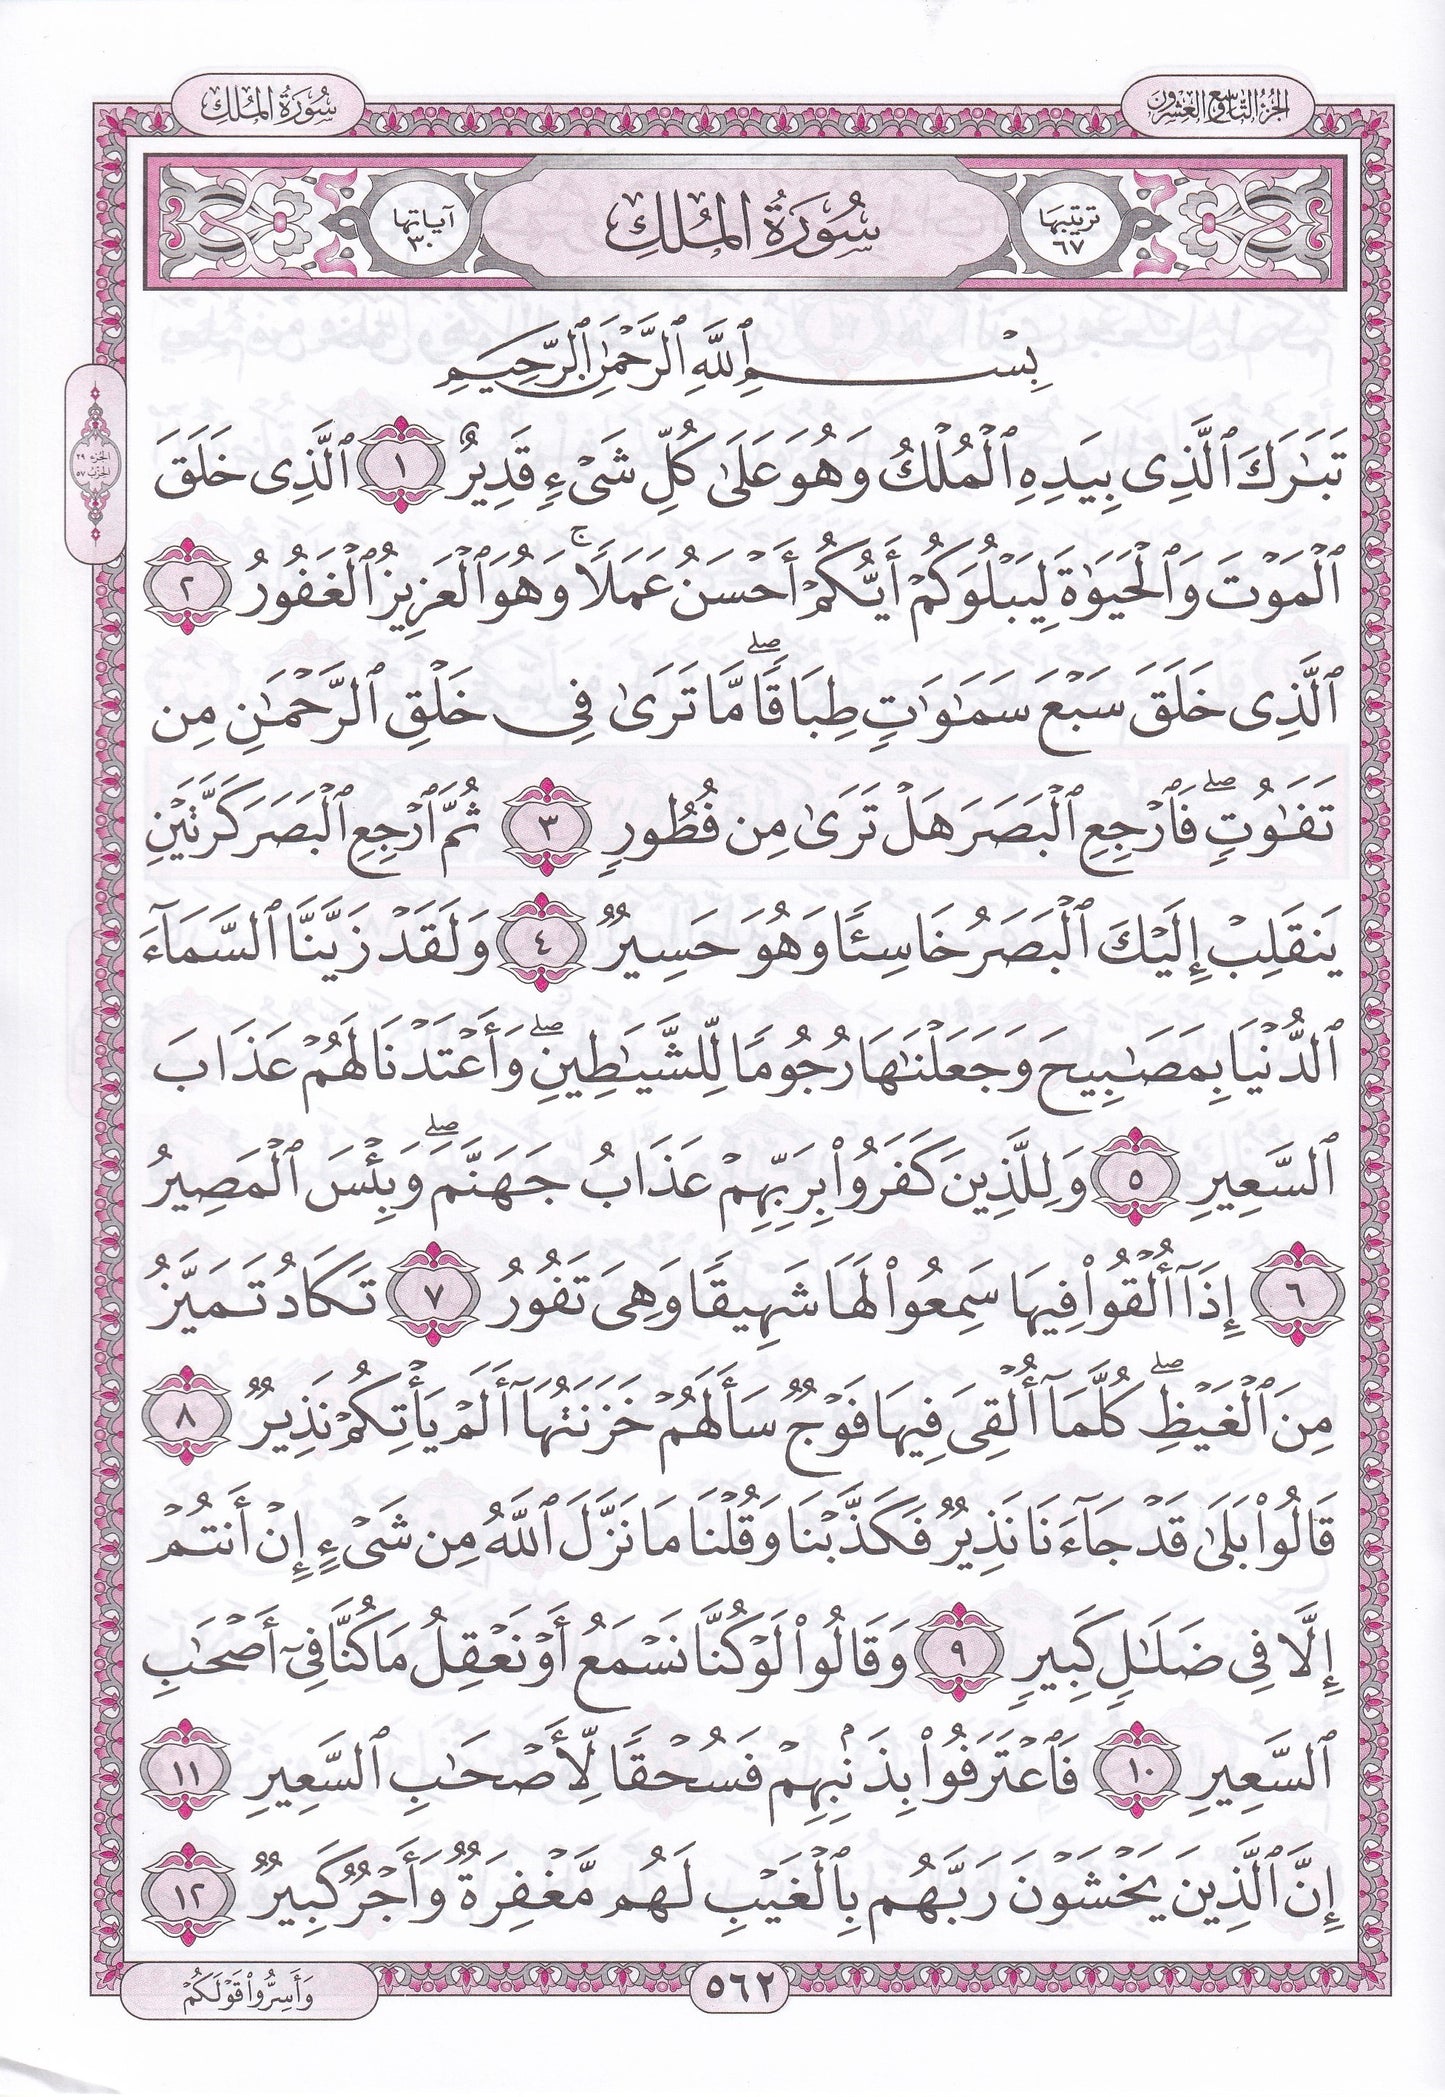 الجزء التاسع والعشرون
سُورَةُ المُلكِ
ترتيبها
٦٧
سُورَةُ المُلكِ
آياتها
٣٠
بِسْمِ ٱللَّهِ ٱلرَّحْمَٰنِ ٱلرَّحِيمِ
الجزء ٢٩
الحزب ٥٧
تَبَٰرَكَ ٱلَّذِى بِيَدِهِ ٱلْمُلْكُ وَهُوَ عَلَىٰ كُلِّ شَىْءٍ قَدِيرٌ ١ ٱلَّذِى خَلَقَ
ٱلْمَوْتَ وَٱلْحَيَوٰةَ لِيَبْلُوَكُمْ أَيُّكُمْ أَحْسَنُ عَمَلًا ۚ وَهُوَ ٱلْعَزِيزُ ٱلْغَفُورُ ٢
ٱلَّذِى خَلَقَ سَبْعَ سَمَٰوَٰتٍ طِبَاقًا ۖ مَّا تَرَىٰ فِى خَلْقِ ٱلرَّحْمَٰنِ مِن
تَفَٰوُتٍ ۖ فَٱرْجِعِ ٱلْبَصَرَ هَلْ تَرَىٰ مِن فُطُورٍ ٣ ثُمَّ ٱرْجِعِ ٱلْبَصَرَ كَرَّتَيْنِ
يَنقَلِبْ إِلَيْكَ ٱلْبَصَرُ خَاسِئًا وَهُوَ حَسِيرٌ ٤ وَلَقَدْ زَيَّنَّا ٱلسَّمَآءَ
ٱلدُّنْيَا بِمَصَٰبِيحَ وَجَعَلْنَٰهَا رُجُومًا لِّلشَّيَٰطِينِ ۖ وَأَعْتَدْنَا لَهُمْ عَذَابَ
ٱلسَّعِيرِ ٥ وَلِلَّذِينَ كَفَرُوا۟ بِرَبِّهِمْ عَذَابُ جَهَنَّمَ ۖ وَبِئْسَ ٱلْمَصِيرُ
٦ إِذَآ أُلْقُوا۟ فِيهَا سَمِعُوا۟ لَهَا شَهِيقًا وَهِىَ تَفُورُ ٧ تَكَادُ تَمَيَّزُ
مِنَ ٱلْغَيْظِ ۖ كُلَّمَآ أُلْقِىَ فِيهَا فَوْجٌ سَأَلَهُمْ خَزَنَتُهَآ أَلَمْ يَأْتِكُمْ نَذِيرٌ ٨
قَالُوا۟ بَلَىٰ قَدْ جَآءَنَا نَذِيرٌ فَكَذَّبْنَا وَقُلْنَا مَا نَزَّلَ ٱللَّهُ مِن شَىْءٍ إِنْ أَنتُمْ
إِلَّا فِى ضَلَٰلٍ كَبِيرٍ ٩ وَقَالُوا۟ لَوْ كُنَّا نَسْمَعُ أَوْ نَعْقِلُ مَا كُنَّا فِىٓ أَصْحَٰبِ
ٱلسَّعِيرِ ١٠ فَٱعْتَرَفُوا۟ بِذَنۢبِهِمْ فَسُحْقًا لِّأَصْحَٰبِ ٱلسَّعِيرِ ١١
إِنَّ ٱلَّذِينَ يَخْشَوْنَ رَبَّهُم بِٱلْغَيْبِ لَهُم مَّغْفِرَةٌ وَأَجْرٌ كَبِيرٌ ١٢
٥٦٢
وَأَسِرُّوا۟ قَوْلَكُمْ